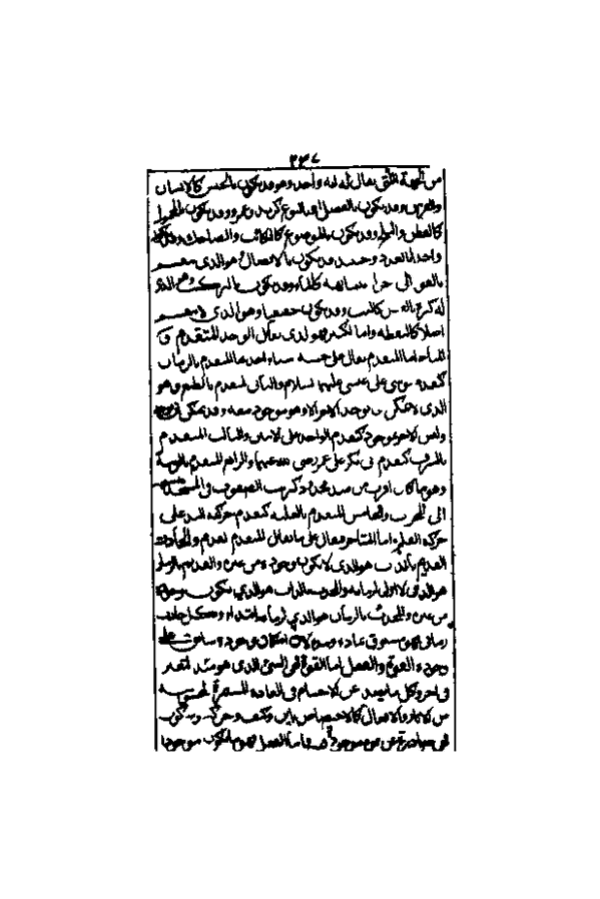 ٢٣٧
من الجهة التي يقال له انه واحد وهو قد يكون بالجنس كالانسان
والفرس وقد يكون بالفصل او بالنوع كزيد وعمرو وقد يكون بالمحمول
كالقطن والثلج وقد يكون بالموضوع كالكاتب والضاحك وقد يكون
واحدا بالعدد وحينئذ قد يكون بالاتصال وهو الذي ينقسم
بالقوة الى اجزاء متشابهة كالماء وقد يكون بالتركيب وهو الذي
له كثرة بالفعل كالبيت وقد يكون حقيقيا وهو الذي لا ينقسم
اصلا كالنقطة واما الكثير فهو الذي يقابل الواحد المتقدم و
المتأخر اما المتقدم يقال على خمسة اشياء احدها المتقدم بالزمان
كتقدم موسى على عيسى عليهما السلام والثاني المتقدم بالطبع وهو
الذي لا يمكن ان يوجد الاخر الا وهو موجود معه وقد يمكن ان يوجد
وليس الاخر بموجود كتقدم الواحد على الاثنين والثالث المتقدم
بالشرف كتقدم ابي بكر على عمر رضي الله عنهما والرابع المتقدم بالرتبة
وهو ما كان اقرب من مبدء محدود كترتيب الصفوف في المسجد
الى المحراب والخامس المتقدم بالعلية كتقدم حركة اليد على
حركة القلم واما المتأخر فيقال على ما يقابل المتقدم القديم والحادث
القديم بالذات هو الذي لا يكون وجوده من غيره والقديم بالزمان
هو الذي لا اول لزمانه والمحدث بالذات هو الذي يكون وجوده
من غيره والمحدث بالزمان هو الذي لزمانه ابتداء وكل حادث
زماني فهو مسبوق بمادة ومدة لان امكان وجوده سابق على
وجوده القوة والفعل اما القوة فهي الشئ الذي هو مبدء التغير
في اخر وكل ما يصدر عن الاجسام في العادة المستمرة المحسوسة
من الاثار والافعال كالاختصاص باين وكيف وحركة وسكون
فهي صادرة عن قوة موجودة فيه واما الفعل فهو ما يكون موجودا